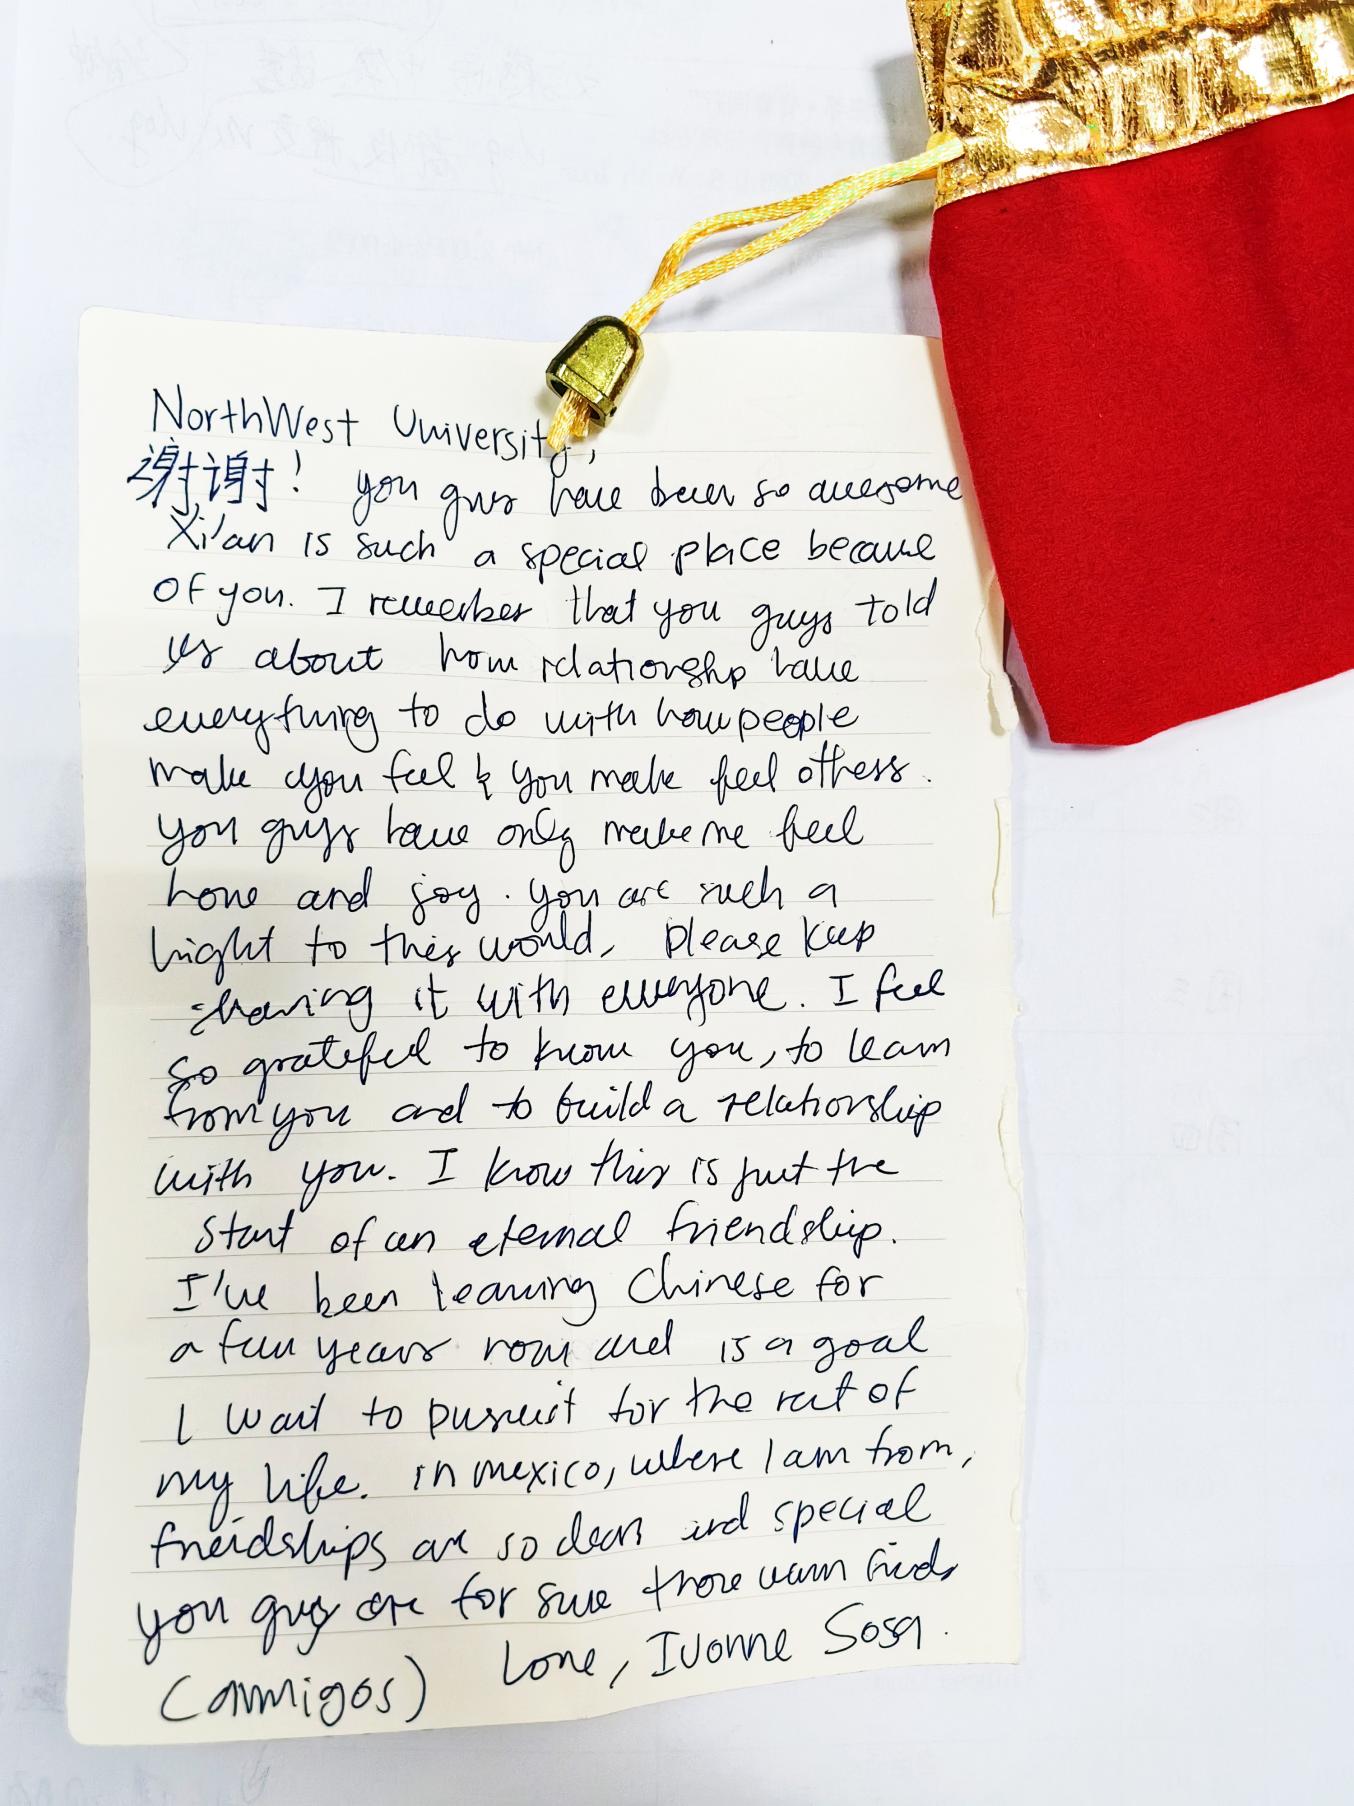 NorthWest University,
谢谢! you guys have been so awesome
Xi'an is such a special place because
of you. I remember that you guys told
us about how relationship have
everything to do with how people
make you feel & you make feel others.
you guys have only make me feel
home and joy. you are such a
light to this world, please keep
sharing it with everyone. I feel
so grateful to know you, to learn
from you and to build a relationship
with you. I know this is just the
start of an eternal friendship.
I've been learning Chinese for
a few years now and is a goal
I want to pursuit for the rest of
my life. in mexico, where I am from,
friendships are so dear and special
you guys are for sure those warm friends
(ammigos) Love, Ivonne Sosa.